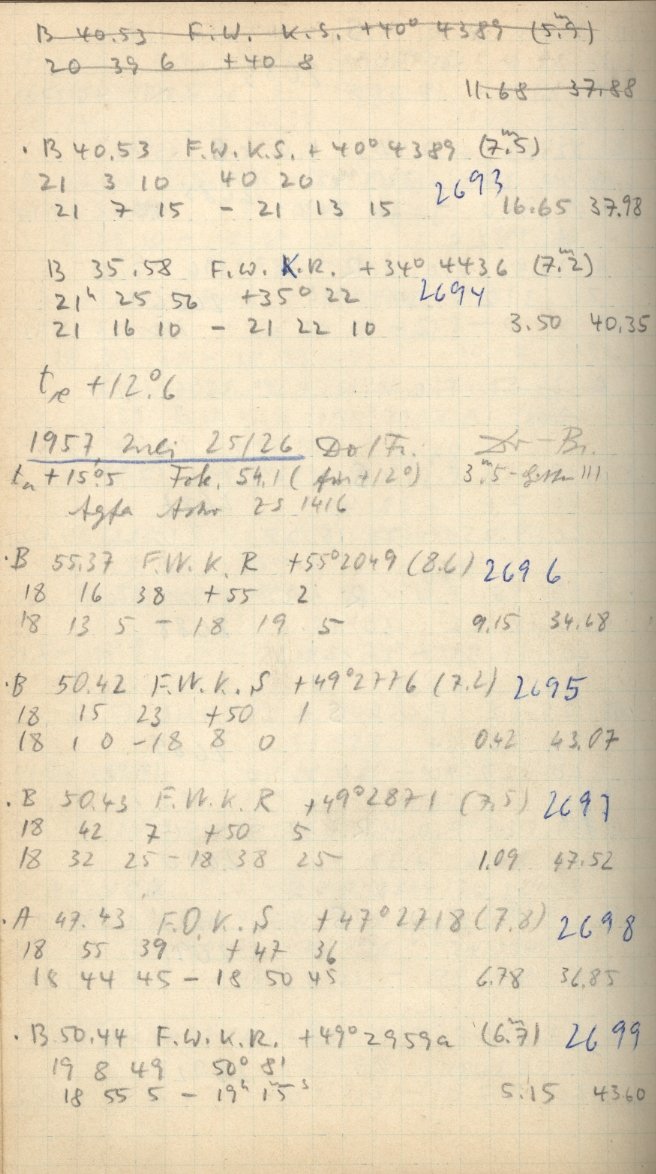 B 40.53 F.W. K.S. +40° 4389 (5.ᵐ9)
20 39 6 +40 8
11.68 37.88
· B 40.53 F.W.K.S. +40° 4389 (7.ᵐ5)
21 3 10 40 20 2693
21 7 15 - 21 13 15 16.65 37.98
B 35.58 F.W.K.R. +34° 4436 (7.ᵐ2)
21ʰ 25 56 +35° 22 2694
21 16 10 - 21 22 10 3.50 40.35
+12°.6
1957 25/26 Do/Fr. Dr-Br.
+15°.5 Fok. 54,1 (für +12°) 3.ᵐ5
Agfa Astro ZS 1416
· B 55.37 F.W.K.R +55°2049 (8.6) 2696
18 16 38 +55 2
18 13 5 - 18 19 5 9.15 34.68
· B 50.42 F.W.K.S +49°2776 (7.2) 2695
18 15 23 +50 1
18 1 0 - 18 8 0 0.42 43.07
· B 50.43 F.W.K.R +49°2871 (7.5) 2697
18 42 7 +50 5
18 32 25 - 18 38 25 1.09 47.52
· A 47.43 F.O.K.S +47°2718 (7.8) 2698
18 55 39 +47 36
18 44 45 - 18 50 45 6.78 36.85
· B 50.44 F.W.K.R. +49° 2959a (6.ᵐ7) 2699
19 8 49 50° 8'
18 55 5 - 19ʰ 1ᵐ5ˢ 5.15 4360